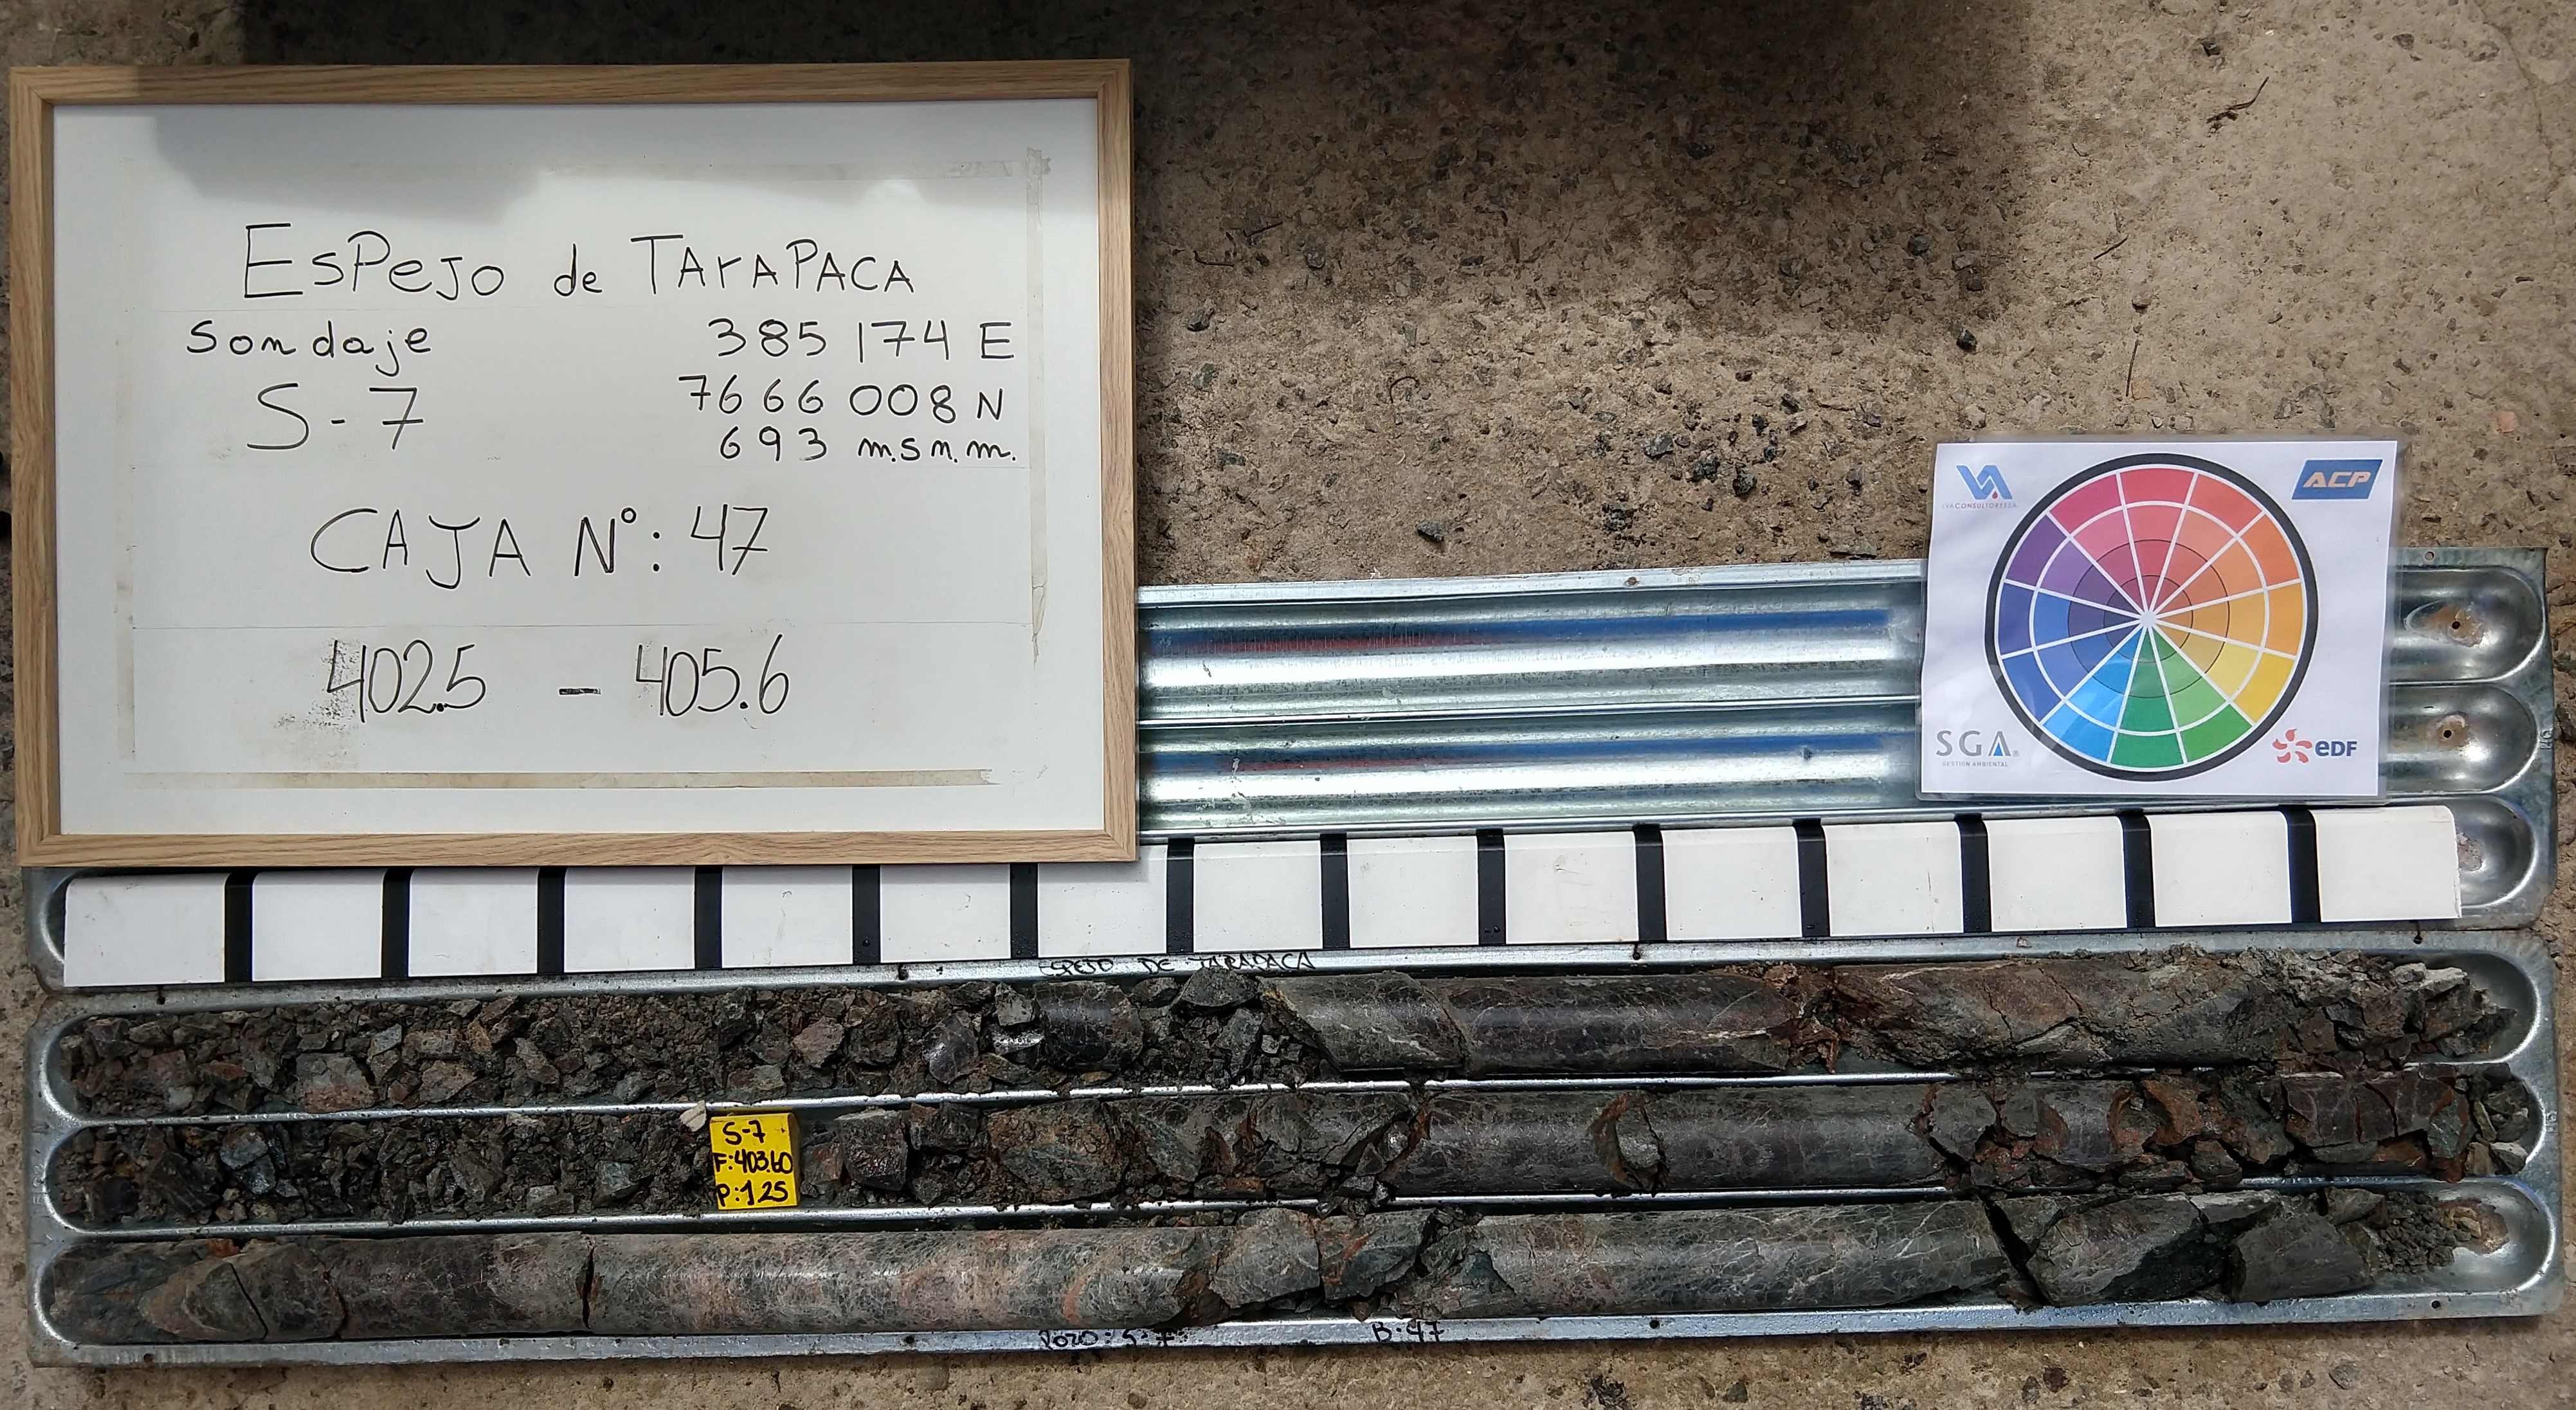 ESPEJO de TArAPACA
Sondaje
S-7
385 174 E
7666 008 N
693 m.s.n.m.
CAJA N°: 47
402.5 - 405.6
ACP
SGA
GESTION AMBIENTAL
eDF
ESPEJO DE TARAPACA
S-7
F:403.60
P:1.25
POZO: S-7
B:47